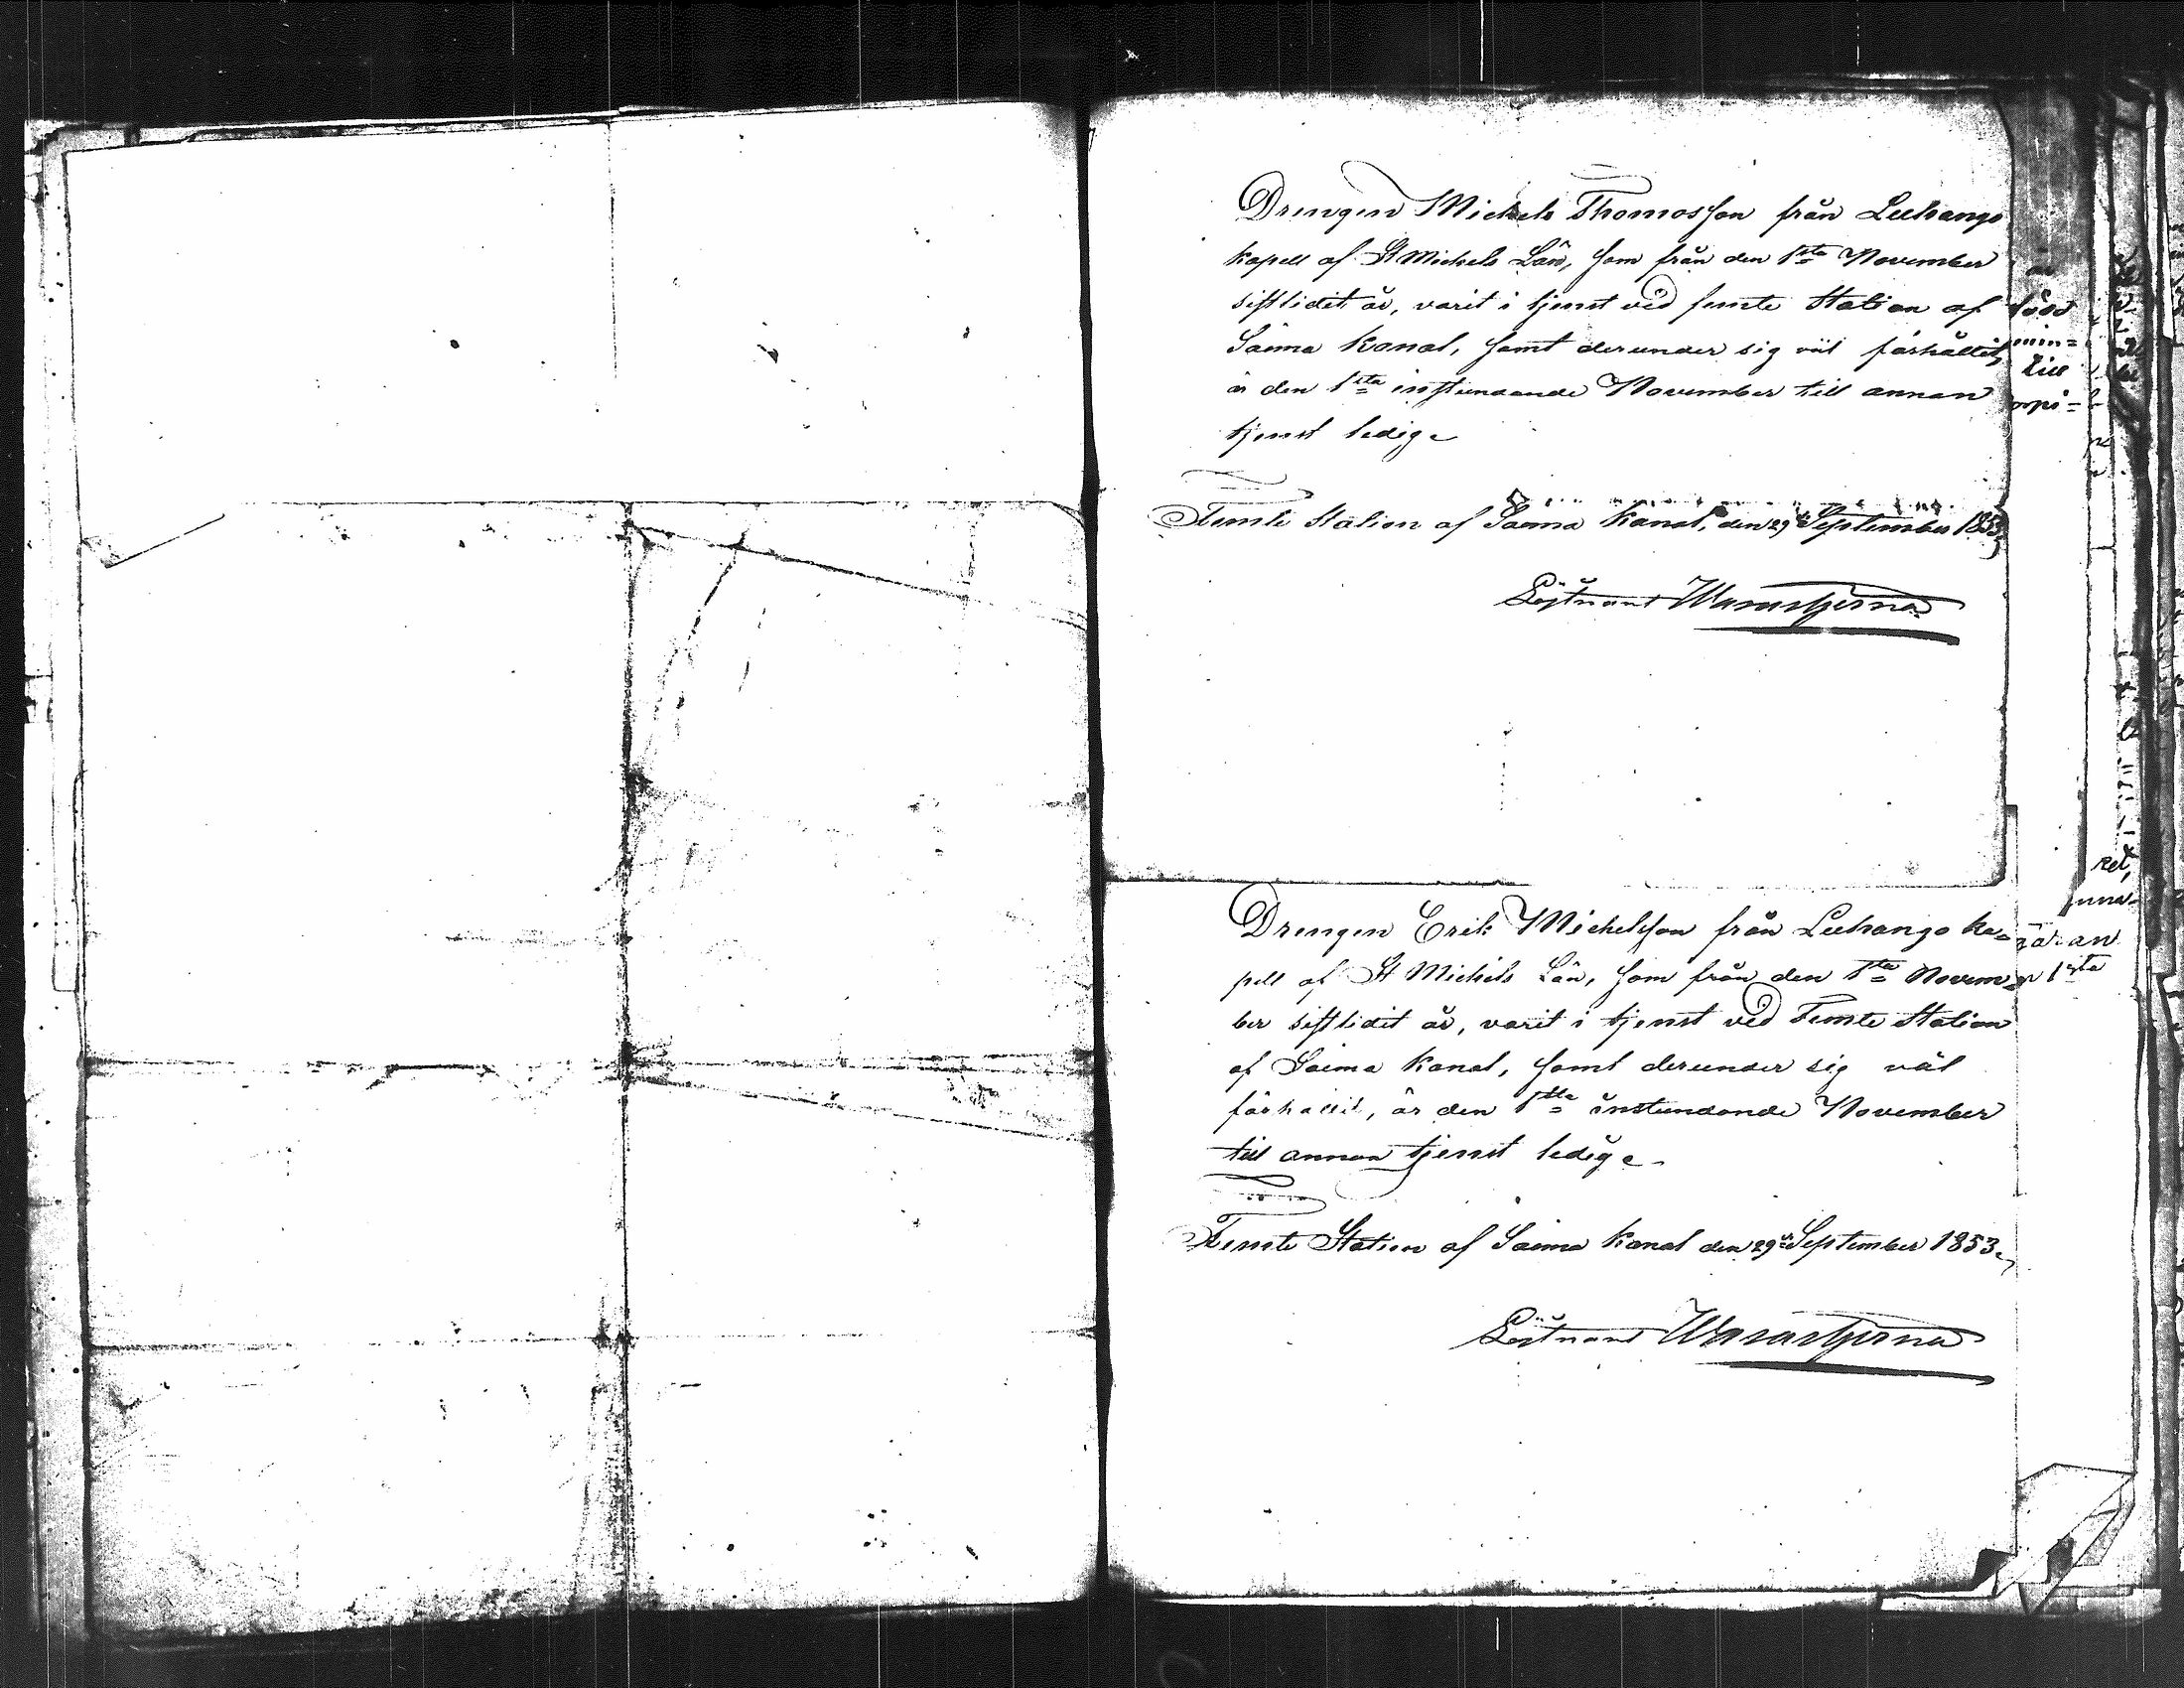 Drengen Michels Thomosson från Luhango
kapell af St Michels Län, som från den 1sta November
sistlidit år, varit i tjenst vid femte Station af
Saima Kanal, samt derunder sig väl förhållit,
är den 1sta instundande November till annan
tjenst ledig.
Femte Station af Saima Kanal, den 29de September 1853.
Löjtnant Wasastjerna
Drengen Erik Michelsson från Luhango ka=
pell af St Michels Län, som från den 1sta Novem=
ber sistlidit år, varit i tjenst vid Femte Station
af Saima Kanal, samt derunder sig väl
förhållit, är den 1sta instundande November
till annan tjenst ledig.
Femte Station af Saima Kanal den 29de September 1853.
Löjtnant Wasastjerna